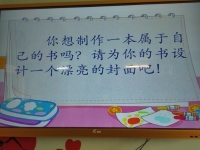 你想制作一本属于自
己的书吗？请为你的书设
计一个漂亮的封面吧！